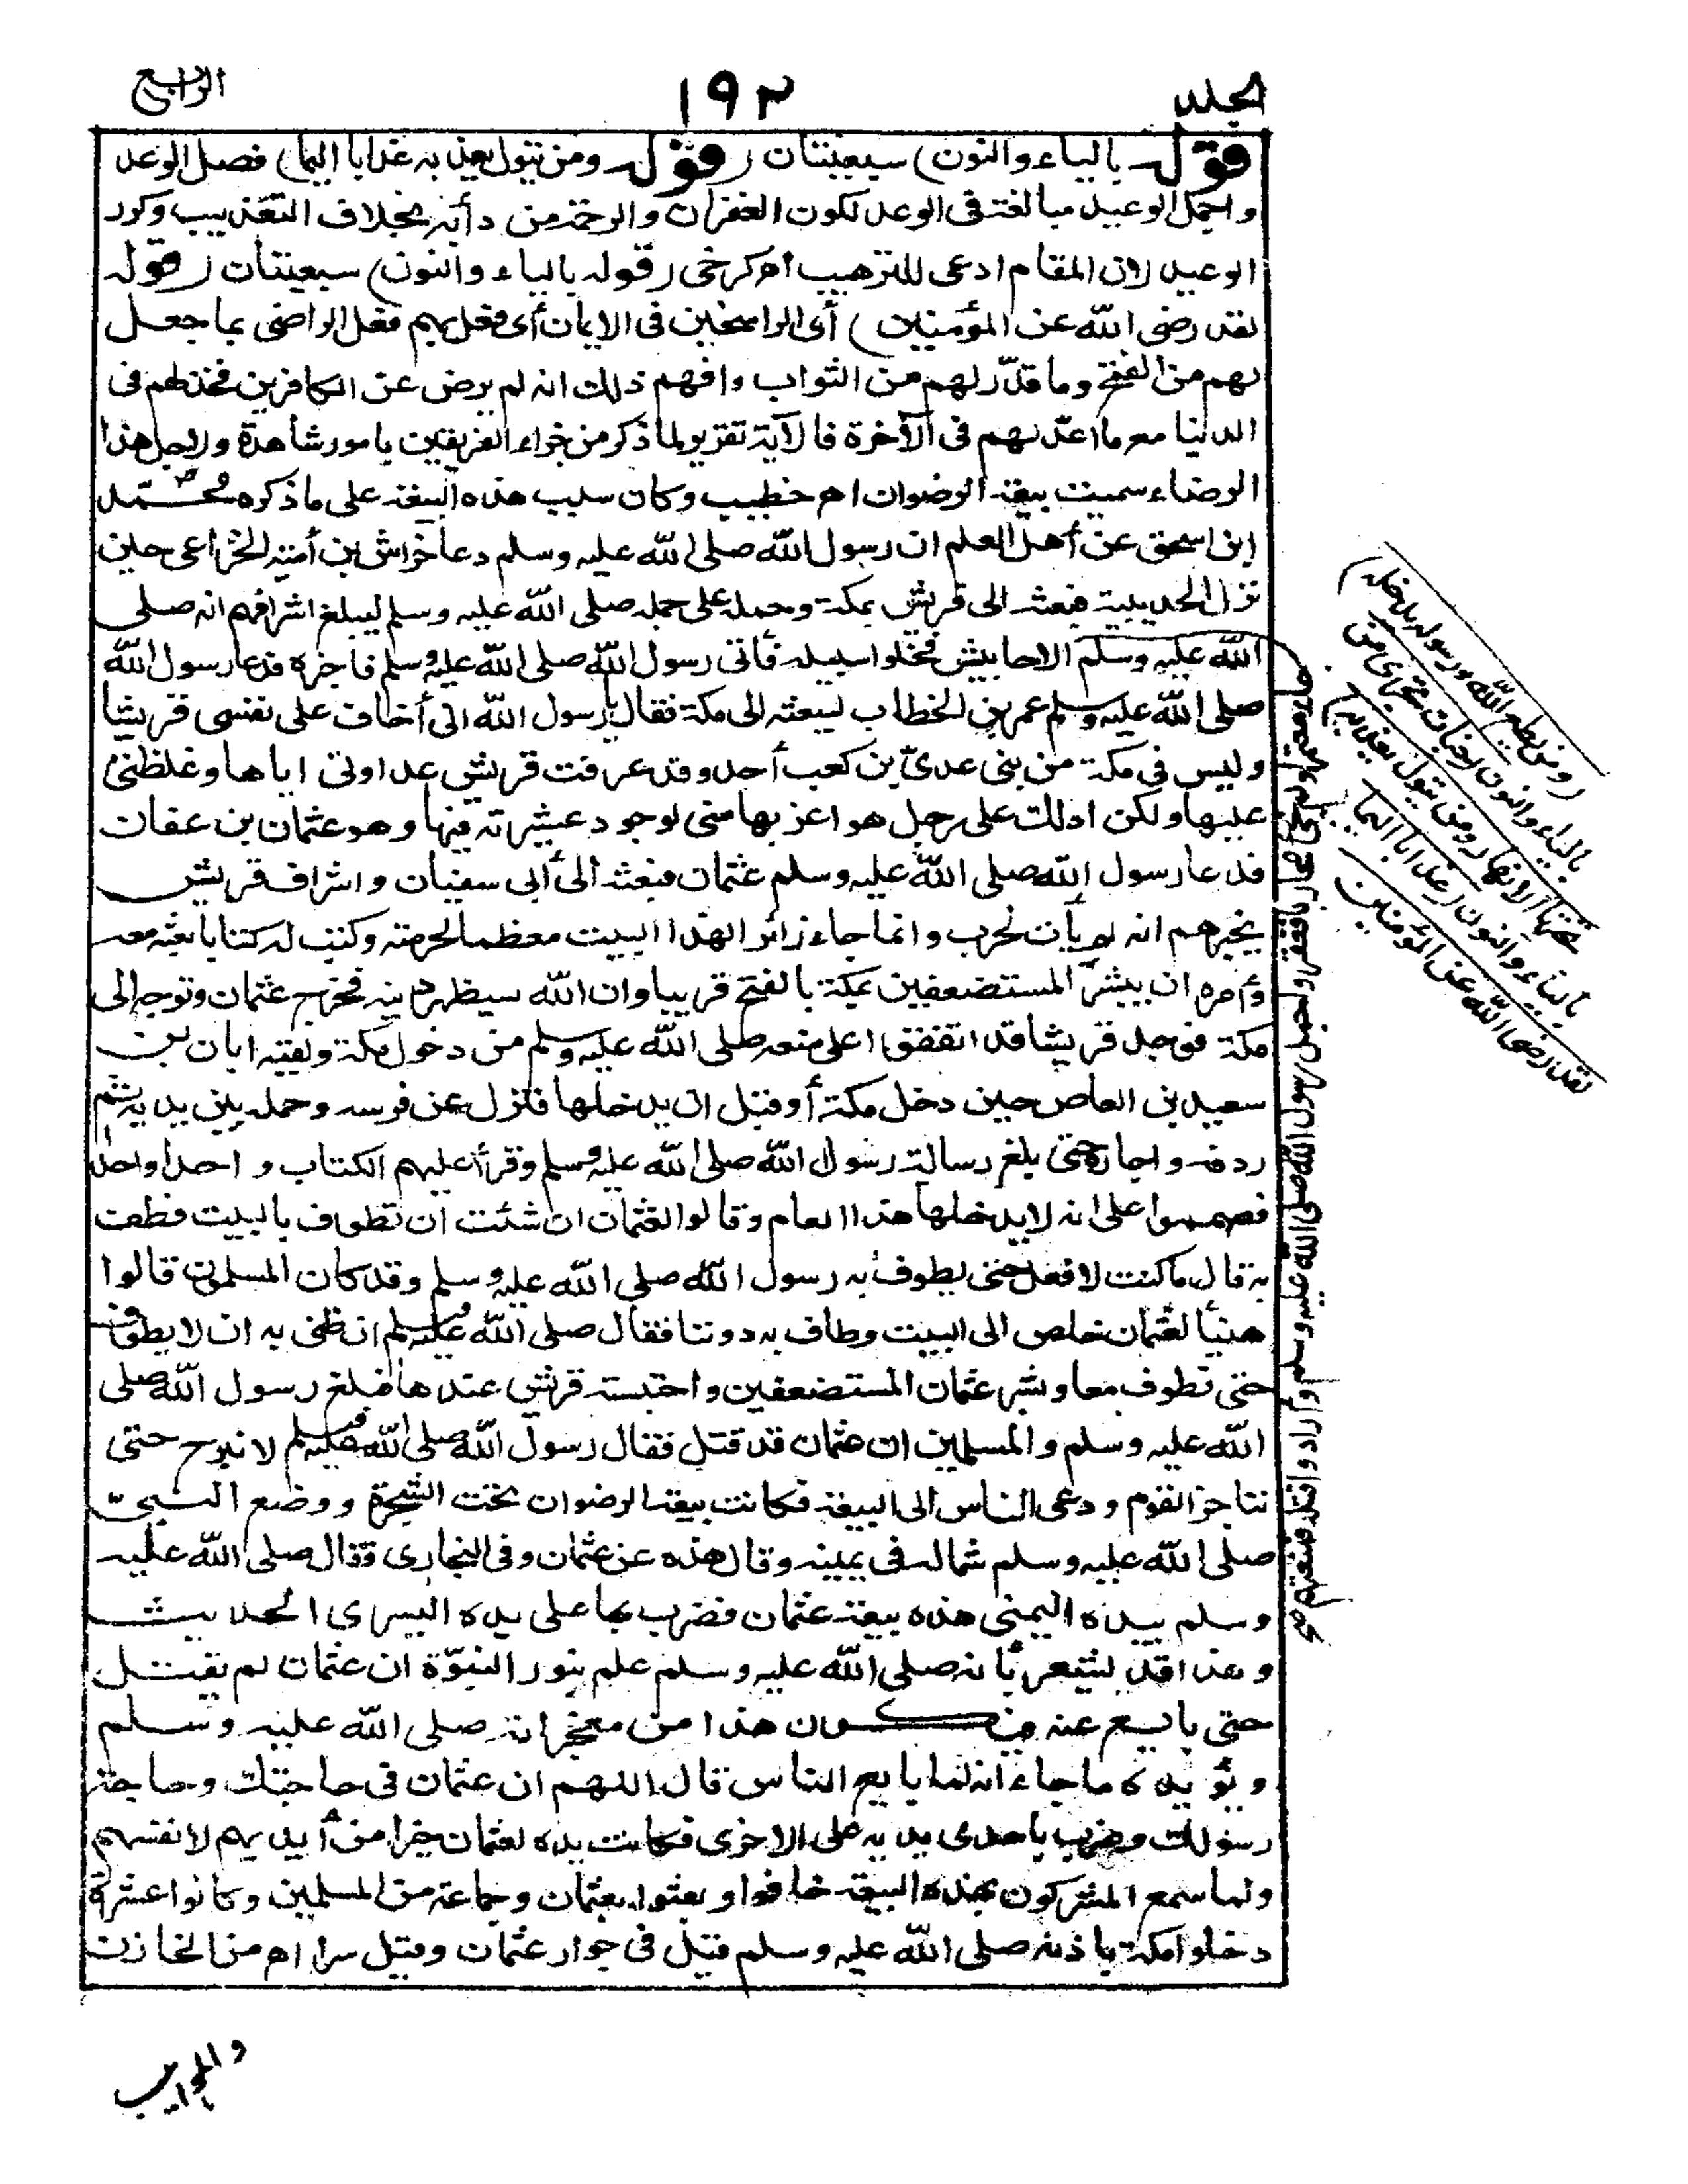 الجلد ١٩٢ الرابع
قوله بالياء والنون) سبعيتان (قوله ومن يتول يعذبه عذابا اليما) فصل الوعد
واجمل الوعيد مبالغة فى الوعد لكون الغفران والرحمة من دأبه بخلاف التعذيب وكرر
الوعيد لان المقام ادعى للترهيب اه كرخى (قوله بالياء والنون) سبعيتان (قوله
لقد رضى الله عن المؤمنين) أى الراسخين فى الايمان أى فعل بهم فعل الراضى بما جعل
لهم من الفتح وما قدّر لهم من الثواب وافهم ذلك انه لم يرض عن الكافرين فخذلهم فى
الدنيا مع ما اعدّ لهم فى الآخرة فالآية تقرير لما ذكر من جزاء الفريقين بامور شاهدة ولاجل هذا
الرضاء سميت بيعة الرضوان اه خطيب وكان سبب هذه البيعة على ما ذكره محمّد
ابن اسحق عن أهل العلم ان رسول الله صلى الله عليه وسلم دعا خراش بن أمية الخزاعى حين
نزل الحديبية فبعثه الى قريش بمكة وحمله على جمله صلى الله عليه وسلم ليبلغ اشرافهم انه صلى
الله عليه وسلم الاحابيش فخلوا سبيله فأتى رسول الله صلى الله عليه وسلم فاخبره فدعا رسول الله
صلى الله عليه وسلم عمر بن الخطاب ليبعثه الى مكة فقال يا رسول الله انى أخاف على نفسى قريشا
وليس فى مكة من بنى عدىّ بن كعب أحد وقد عرفت قريش عداوتى اياها وغلظتى
عليها ولكن ادلك على رجل هو اعز بها منى لوجود عشيرته فيها وهو عثمان بن عفان
فدعا رسول الله صلى الله عليه وسلم عثمان فبعثه الى أبى سفيان واشراف قريش
يخبرهم انه لم يأت لحرب وانما جاء زائرا لهذا البيت معظما لحرمته وكتب له كتابا بعثه معه
وأمره ان يبشرّ المستضعفين بمكة بالفتح قريبا وان الله سيظهر دينه فخرج عثمان وتوجه الى
مكة فوجد قريشا قد اتفقوا على منعه صلى الله عليه وسلم من دخول مكة ولقيه ابان بن
سعيد بن العاص حين دخل مكة أو قبل ان يدخلها فنزل عن فرسه وحمله بين يديه ثم
ردفه واجاره حتى بلغ رسالة رسول الله صلى الله عليه وسلم وقرأ عليهم الكتاب واحدا واحدا
فصمموا على انه لا يدخلها هذا العام وقالوا لعثمان ان شئت ان تطوف بالبيت فطف
به قال ما كنت لافعل حتى يطوف به رسول الله صلى الله عليه وسلم وقد كان المسلمون قالوا
هنيأ لعثمان خلص الى البيت وطاف به دوننا فقال صلى الله عليه وسلم ان ظنى به ان لا يطوف
حتى نطوف معا وبشر عثمان المستضعفين واحتبسته قريش عندها فبلغ رسول الله صلى
الله عليه وسلم والمسلمين ان عثمان قد قتل فقال رسول الله صلى الله عليه وسلم لا نبرح حتى
نناجز القوم ودعى الناس الى البيعة فكانت بيعة الرضوان تحت الشجرة ووضع النبىّ
صلى الله عليه وسلم شماله فى يمينه وقال هذه عن عثمان وفى البخارى فقال صلى الله عليه
وسلم بيده اليمنى هذه بيعة عثمان فضرب بها على يده اليسرى الحديث
وهذا قد يشعر بأنه صلى الله عليه وسلم علم بنور النبوّة ان عثمان لم يقتل
حتى بايع عنه فيكون هذا من معجزاته صلى الله عليه وسلم
ويؤيده ما جاء انه لما بايع الناس قال اللهم ان عثمان فى حاجتك وحاجة
رسولك وضرب باحدى يديه على الاخرى فكانت يده لعثمان خيرا من أيديهم لانفسهم
ولما سمع المشركون بهذه البيعة خافوا وبعثوا بعثمان وجماعة من المسلمين وكانوا عشرة
دخلوا مكة باذنه صلى الله عليه وسلم قيل فى جوار عثمان وقيل سرا اه من الخازن
(ومن يطع الله ورسوله يدخله)
بالياء والنون (جنات تجرى من
تحتها الانهار ومن يتول يعذبه)
بالياء والنون (عذابا اليما
لقد رضى الله عن المؤمنين
رسول الله صلى الله عليه وسلم وارادوا قتله فمنعته
والمواهب